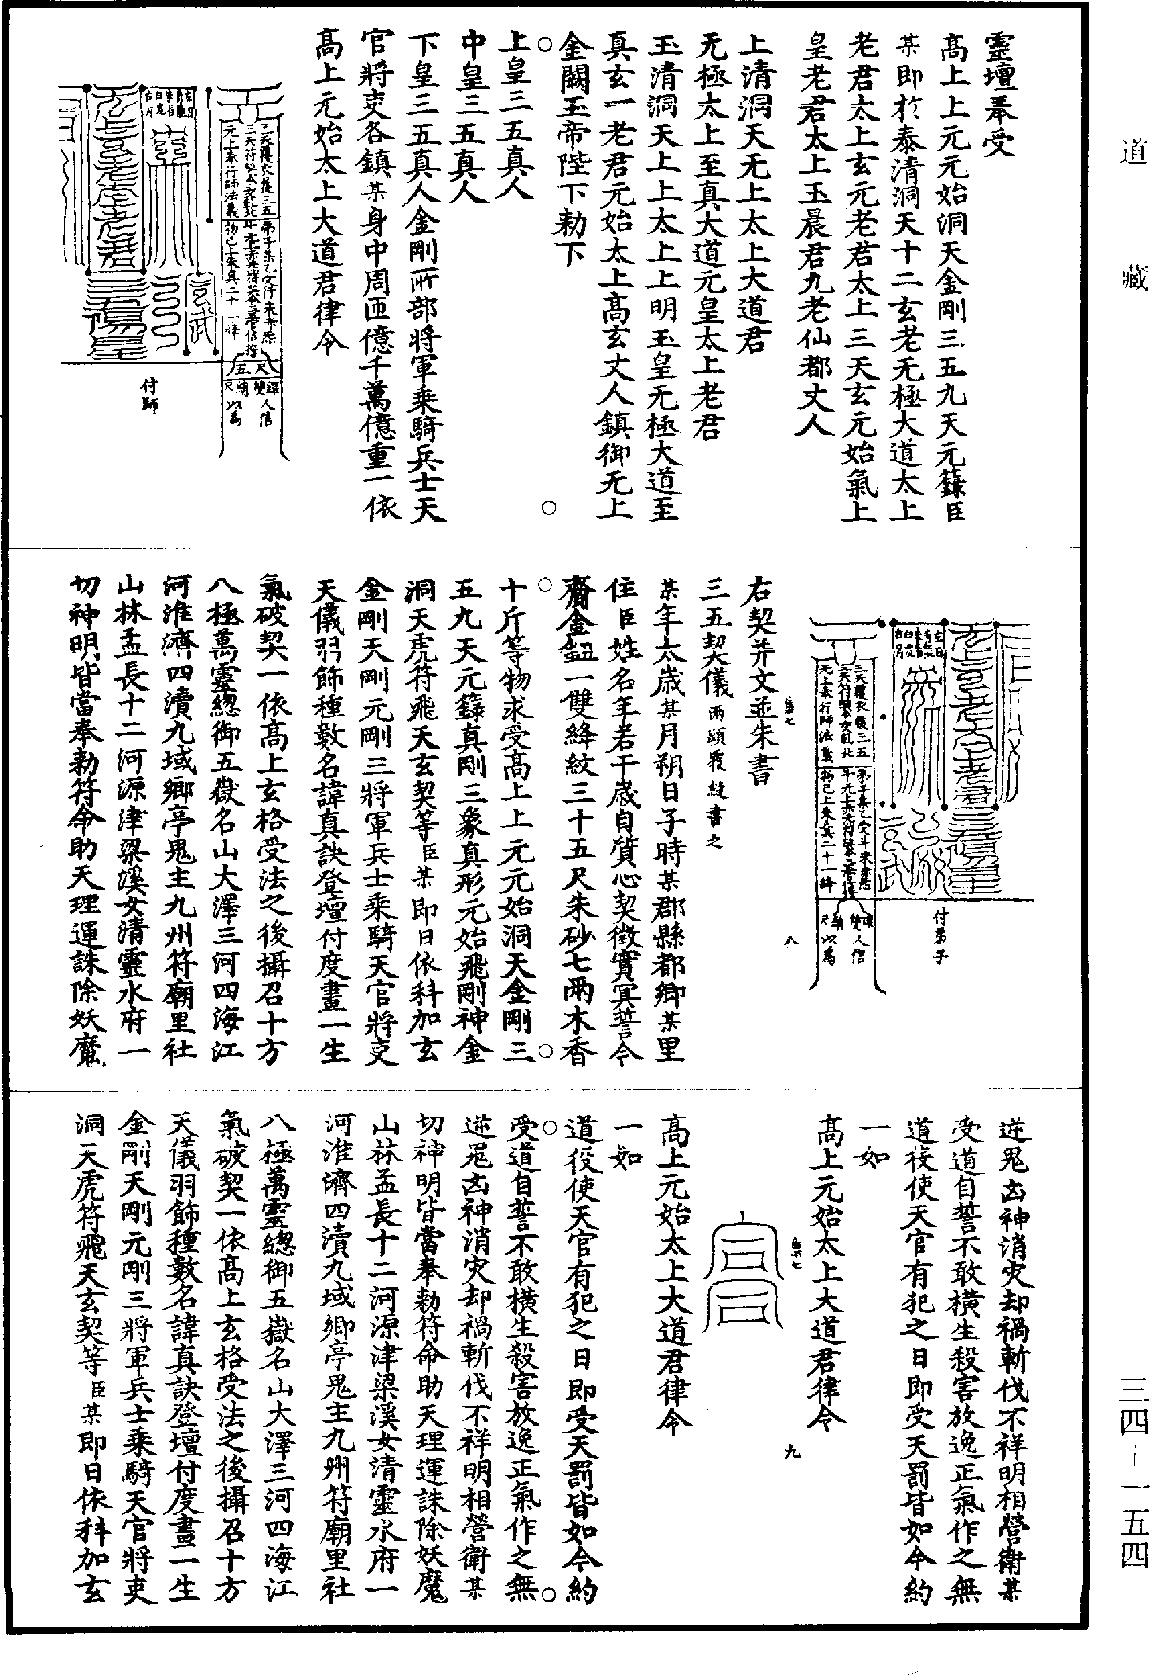 道藏
三四-一五四
靈壇奉受
高上上元元始洞天金剛三五九天元籙臣
某即於泰清洞天十二玄老无極大道太上
老君太上玄元老君太上三天玄元始氣上
皇老君太上玉晨君九老仙都丈人
上清洞天无上太上大道君
无極太上至真大道元皇太上老君
玉清洞天上上太上上明玉皇无極大道至
真玄一老君元始太上高玄丈人鎮御无上
金闕玉帝陛下勑下
上皇三五真人
中皇三五真人
下皇三五真人金剛所部將軍乘騎兵士天
官將吏各鎮某身中周匝億千萬億重一依
高上元始太上大道君律令
付師
付弟子
右契并文並朱書
三五契儀兩頭覆縫書之
某年太歲某月朔日子時某郡縣都鄉某里
住臣姓名年若干歲自質心契徵實冥誓今
齎金鈕一雙絳紋三十五尺朱砂七兩木香
十斤等物求受高上上元元始洞天金剛三
五九天元籙真剛三象真形元始飛剛神金
洞天虎符飛天玄契等臣某即日依科加玄
金剛天剛元剛三將軍兵士乘騎天官將吏
天儀羽飾種數名諱真訣登壇付度畫一生
氣破契一依高上玄格受法之後攝召十方
八極萬靈總御五嶽名山大澤三河四海江
河淮濟四瀆九域鄉亭鬼主九州符廟里社
山林孟長十二河源津梁溪女清靈水府一
切神明皆當奉勑符命助天理運誅除妖魔
逆鬼凶神消災却禍斬伐不祥明相營衛某
受道自誓不敢橫生殺害放逸正氣作之無
道役使天官有犯之日即受天罰皆如今約
一如
高上元始太上大道君律令
八
九
高上元始太上大道君律令
一如
道役使天官有犯之日即受天罰皆如今約
受道自誓不敢橫生殺害放逸正氣作之無
逆鬼凶神消災却禍斬伐不祥明相營衛某
切神明皆當奉勑符命助天理運誅除妖魔
山林孟長十二河源津梁溪女清靈水府一
河淮濟四瀆九域鄉亭鬼主九州符廟里社
八極萬靈總御五嶽名山大澤三河四海江
氣破契一依高上玄格受法之後攝召十方
天儀羽飾種數名諱真訣登壇付度畫一生
金剛天剛元剛三將軍兵士乘騎天官將吏
洞天虎符飛天玄契等臣某即日依科加玄